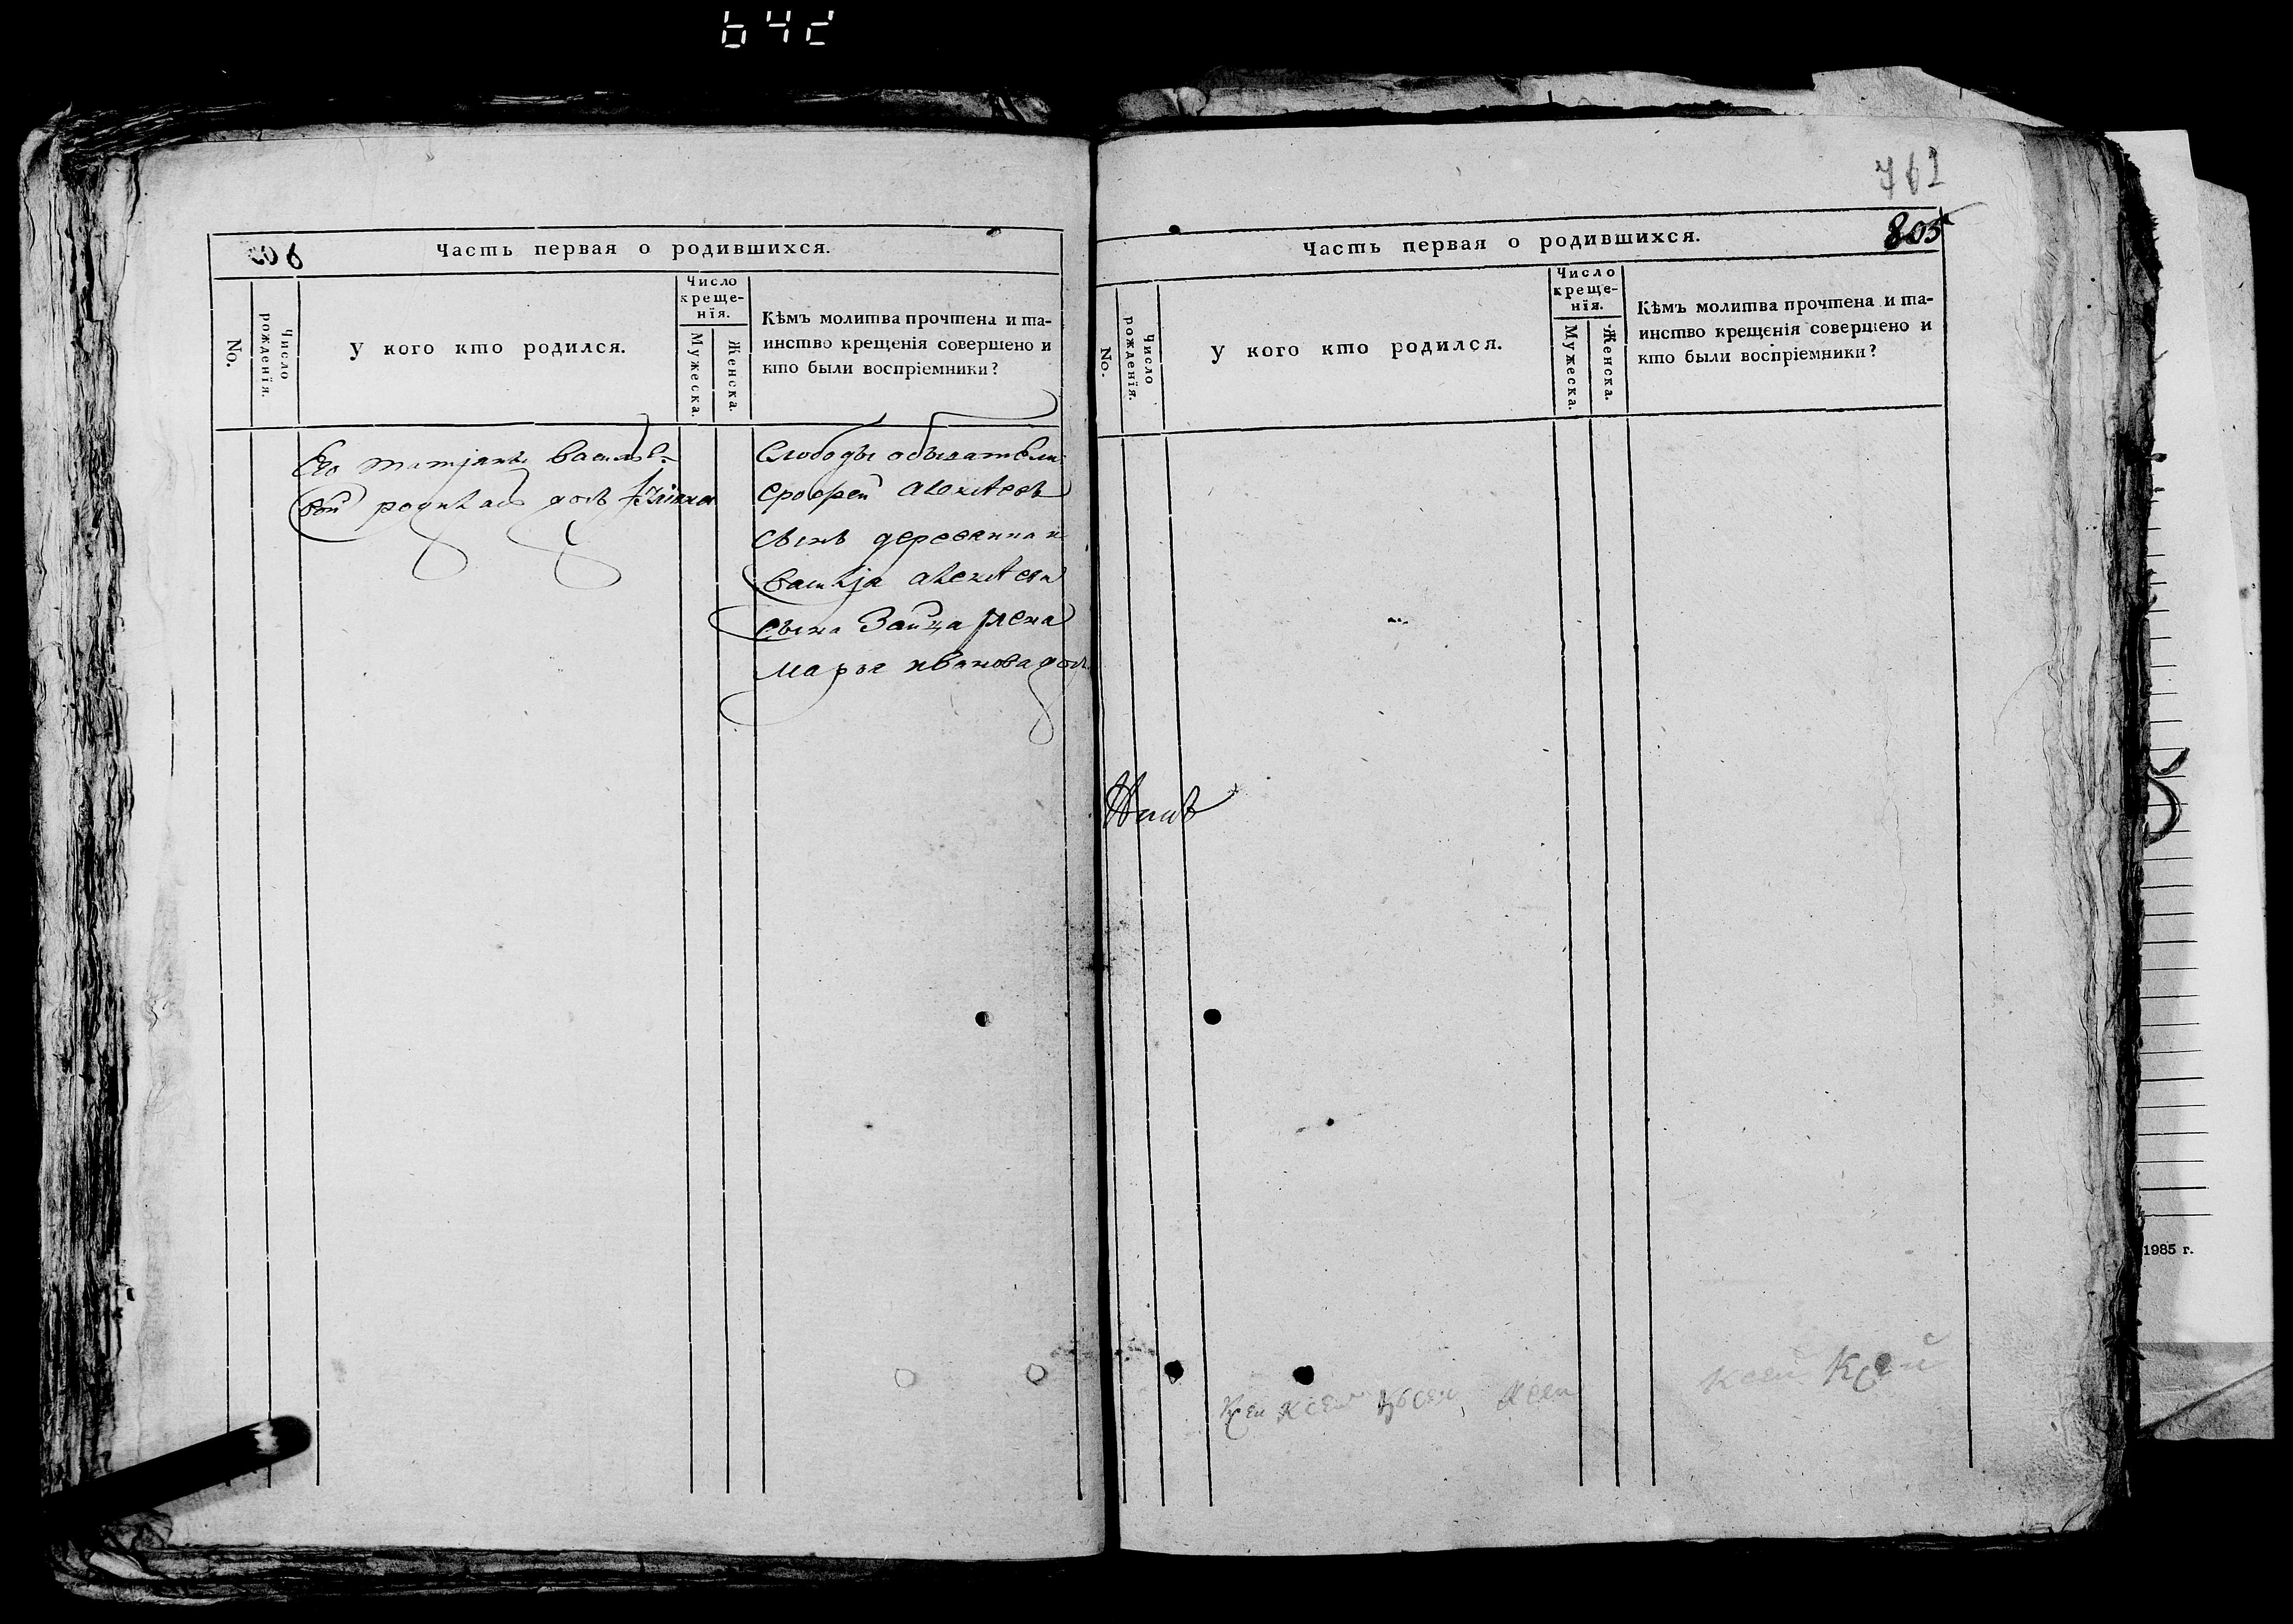 Часть первая о родившихся.
No.
Число рожденія.
У кого кто родился.
Число
креще-
нія.
Мужеска.
Женска.
Кѣмъ молитва прочтена и та-
инство крещенія совершено и
кто были воспріемники?
Его татjаны василье-
вой родилась дочь
Слободы обыватели
алексѣевъ
сынъ
василjя алексѣева
сына Зайца жена
марья иванова дочь
761
805
Часть первая о родившихся.
No.
Число рожденія.
У кого кто родился.
Число
креще-
нія.
Мужеска.
Женска.
Кѣмъ молитва прочтена и та-
инство крещенія совершено и
кто были воспріемники?
1985 г.